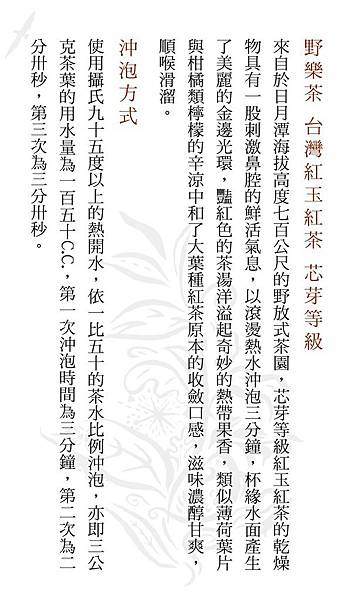 野樂茶 台灣紅玉紅茶 芯芽等級
來自於日月潭海拔高度七百公尺的野放式茶園，芯芽等級紅玉紅茶的乾燥
物具有一股刺激鼻腔的鮮活氣息，以滾燙熱水沖泡三分鐘，杯緣水面產生
了美麗的金邊光環，豔紅色的茶湯洋溢起奇妙的熱帶果香，類似薄荷葉片
與柑橘類檸檬的辛涼中和了大葉種紅茶原本的收斂口感，滋味濃醇甘爽，
順喉滑溜。
沖泡方式
使用攝氏九十五度以上的熱開水，依一比五十的茶水比例沖泡，亦即三公
克茶葉的用水量為一百五十C.C.，第一次沖泡時間為三分鐘，第二次為二
分卅秒，第三次為三分卅秒。